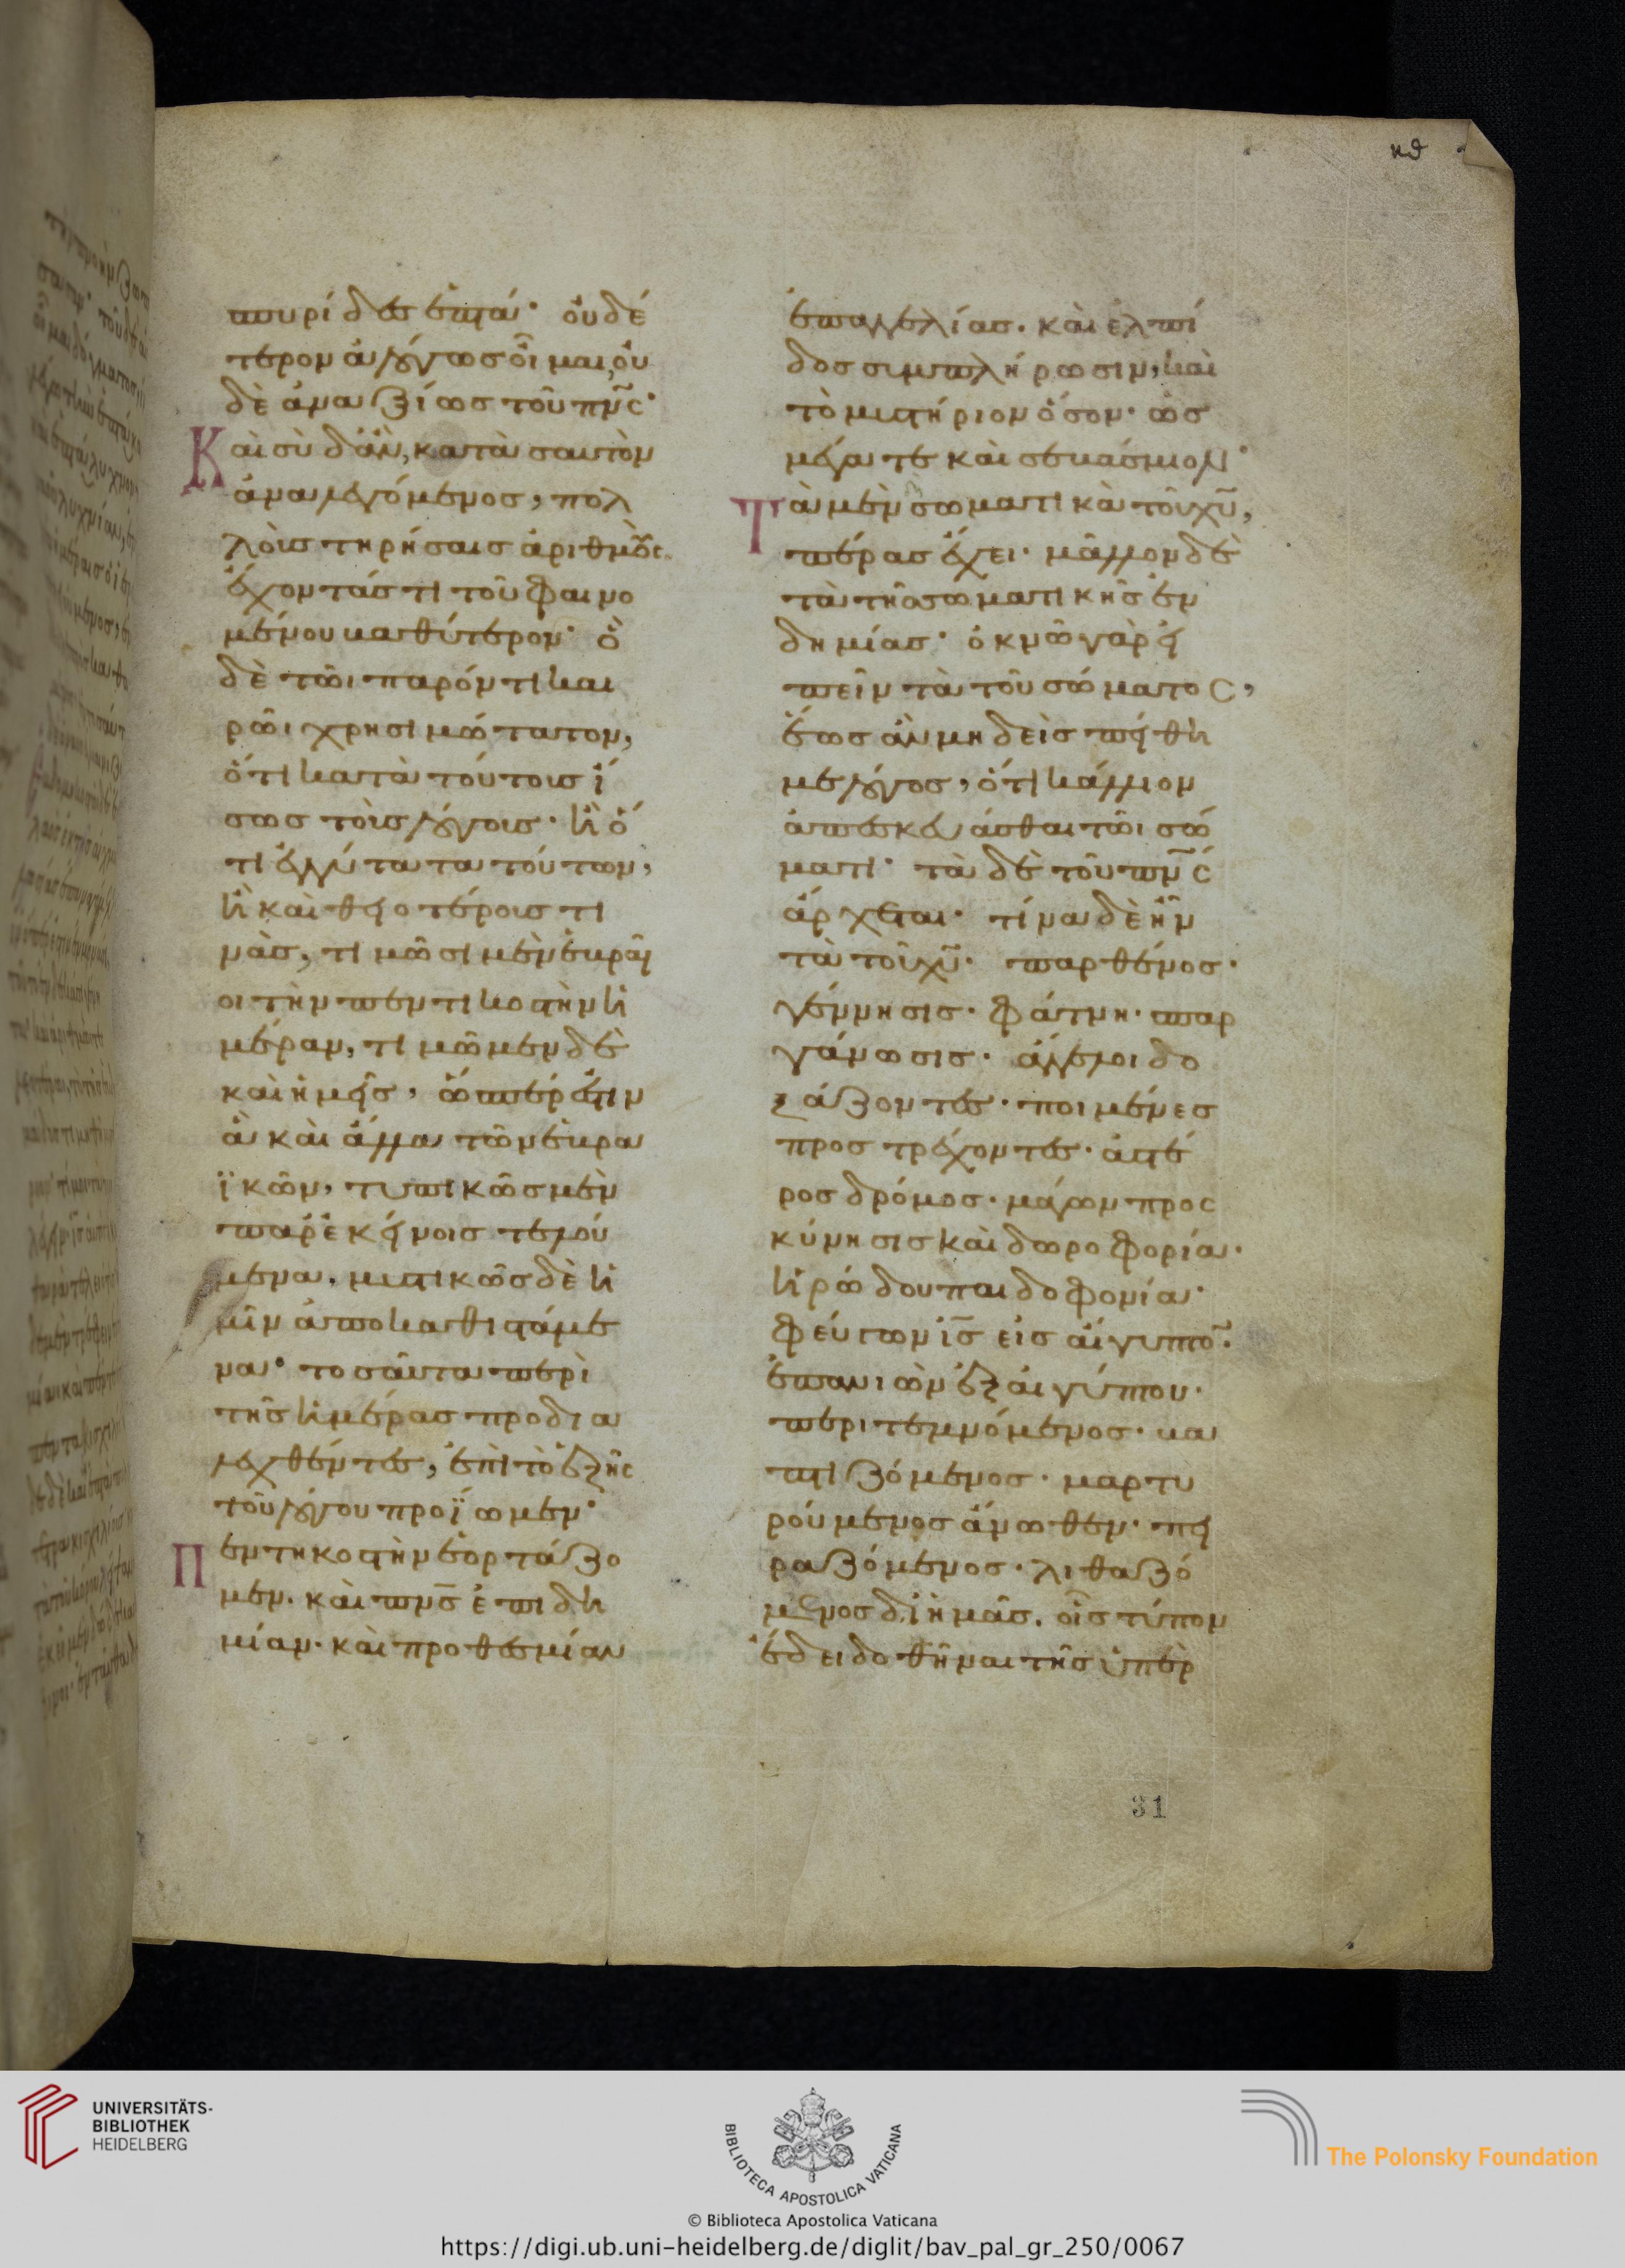 κθ
σπυρίδες ἑπτά· οὐδέ
τερον ἀλόγως οἶμαι, οὐ
δὲ ἀναξίως τοῦ πν̅ς·
Καὶ σὺ δ' ἂν, κατὰ σαυτὸν
ἀναλεγόμενος, πολ
λοὺς τηρήσαις ἀριθμοὺς
ἔχοντάς τι τοῦ φαινο
μένου βαθύτερον· ὃ
δὲ τῶι παρόντι και
ρῶι χρησιμώτατον,
ὅτι κατὰ τούτους ἴ
σως τοὺς λόγους· ἢ ὅ
τι ἐγγύτατα τούτων,
ἢ καὶ θειοτέροις τι
νὰς, τιμῶσι μὲν ἑβραῖ
οι τὴν πεντικοστὴν ἡ
μέραν, τιμῶμεν δὲ
καὶ ἡμεῖς, ὥσπερ ἔστιν
ἃ καὶ ἄλλα τῶν ἑβρα
ϊκῶν, τυπικῶς μὲν
παρ' ἐκείνοις τελού
μενα, μυστικῶς δὲ ἡ
μῖν ἀποκαθιστάμε
να· τοσαῦτα περὶ
τῆς ἡμέρας προδια
λεχθέντες, ἐπὶ τὸ ἑξῆς
τοῦ λόγου προϊωμεν·
Πεντηκοστὴν ἑορτάζο
μεν. καὶ πν̅ς ἐπιδη
μίαν· καὶ προθεσμίαν
ἐπαγγελίας. καὶ ἐλπί
δος συμπλήρωσιν, καὶ
τὸ μυστήριον ὅσον· ὡς
μέγα τε καὶ σεβάσμιον·
Τὰ μὲν σωματικὰ τοῦ χυ̅,
πέρας ἔχει· μᾶλλον δὲ
τὰ τῆς σωματικῆς ἐν
δημίας· ὀκνῶ γὰρ εἰ
πεῖν τὰ τοῦ σώματος,
ἕως ἂν μηδεὶς πείθη
με λόγος, ὅτι κάλλιον
ἀπεσκευάσθαι τῶι σώ
ματι· τὰ δὲ τοῦ πν̅ς
ἄρχεται· τίνα δὲ ἦν
τὰ τοῦ χυ̅· παρθένος·
γέννησις· φάτνη· σπαρ
γάνωσις· ἄγγελοι δο
ξάζοντες· ποιμένες
προστρέχοντες· ἀστέ
ρος δρόμος· μάγων προς
κύνησις καὶ δωροφορία·
ἡρώδου παιδοφονία·
φεύγων ἰς̅ εἰς αἴγυπτο̅·
ἐπανιὼν ἐξ αἰγύπτου·
περιτεμνόμενος· βα
πτιζόμενος· μαρτυ
ρούμενος ἄνωθεν· πει
ραζόμενος· λιθαζό
μενος δι' ἡμᾶς. οἷς τύπον
ἔδει δοθῆναι τῆς ὑπὲρ
31
UNIVERSITÄTS-
BIBLIOTHEK
HEIDELBERG
BIBLIOTECA APOSTOLICA VATICANA
The Polonsky Foundation
© Biblioteca Apostolica Vaticana
https://digi.ub.uni-heidelberg.de/diglit/bav_pal_gr_250/0067